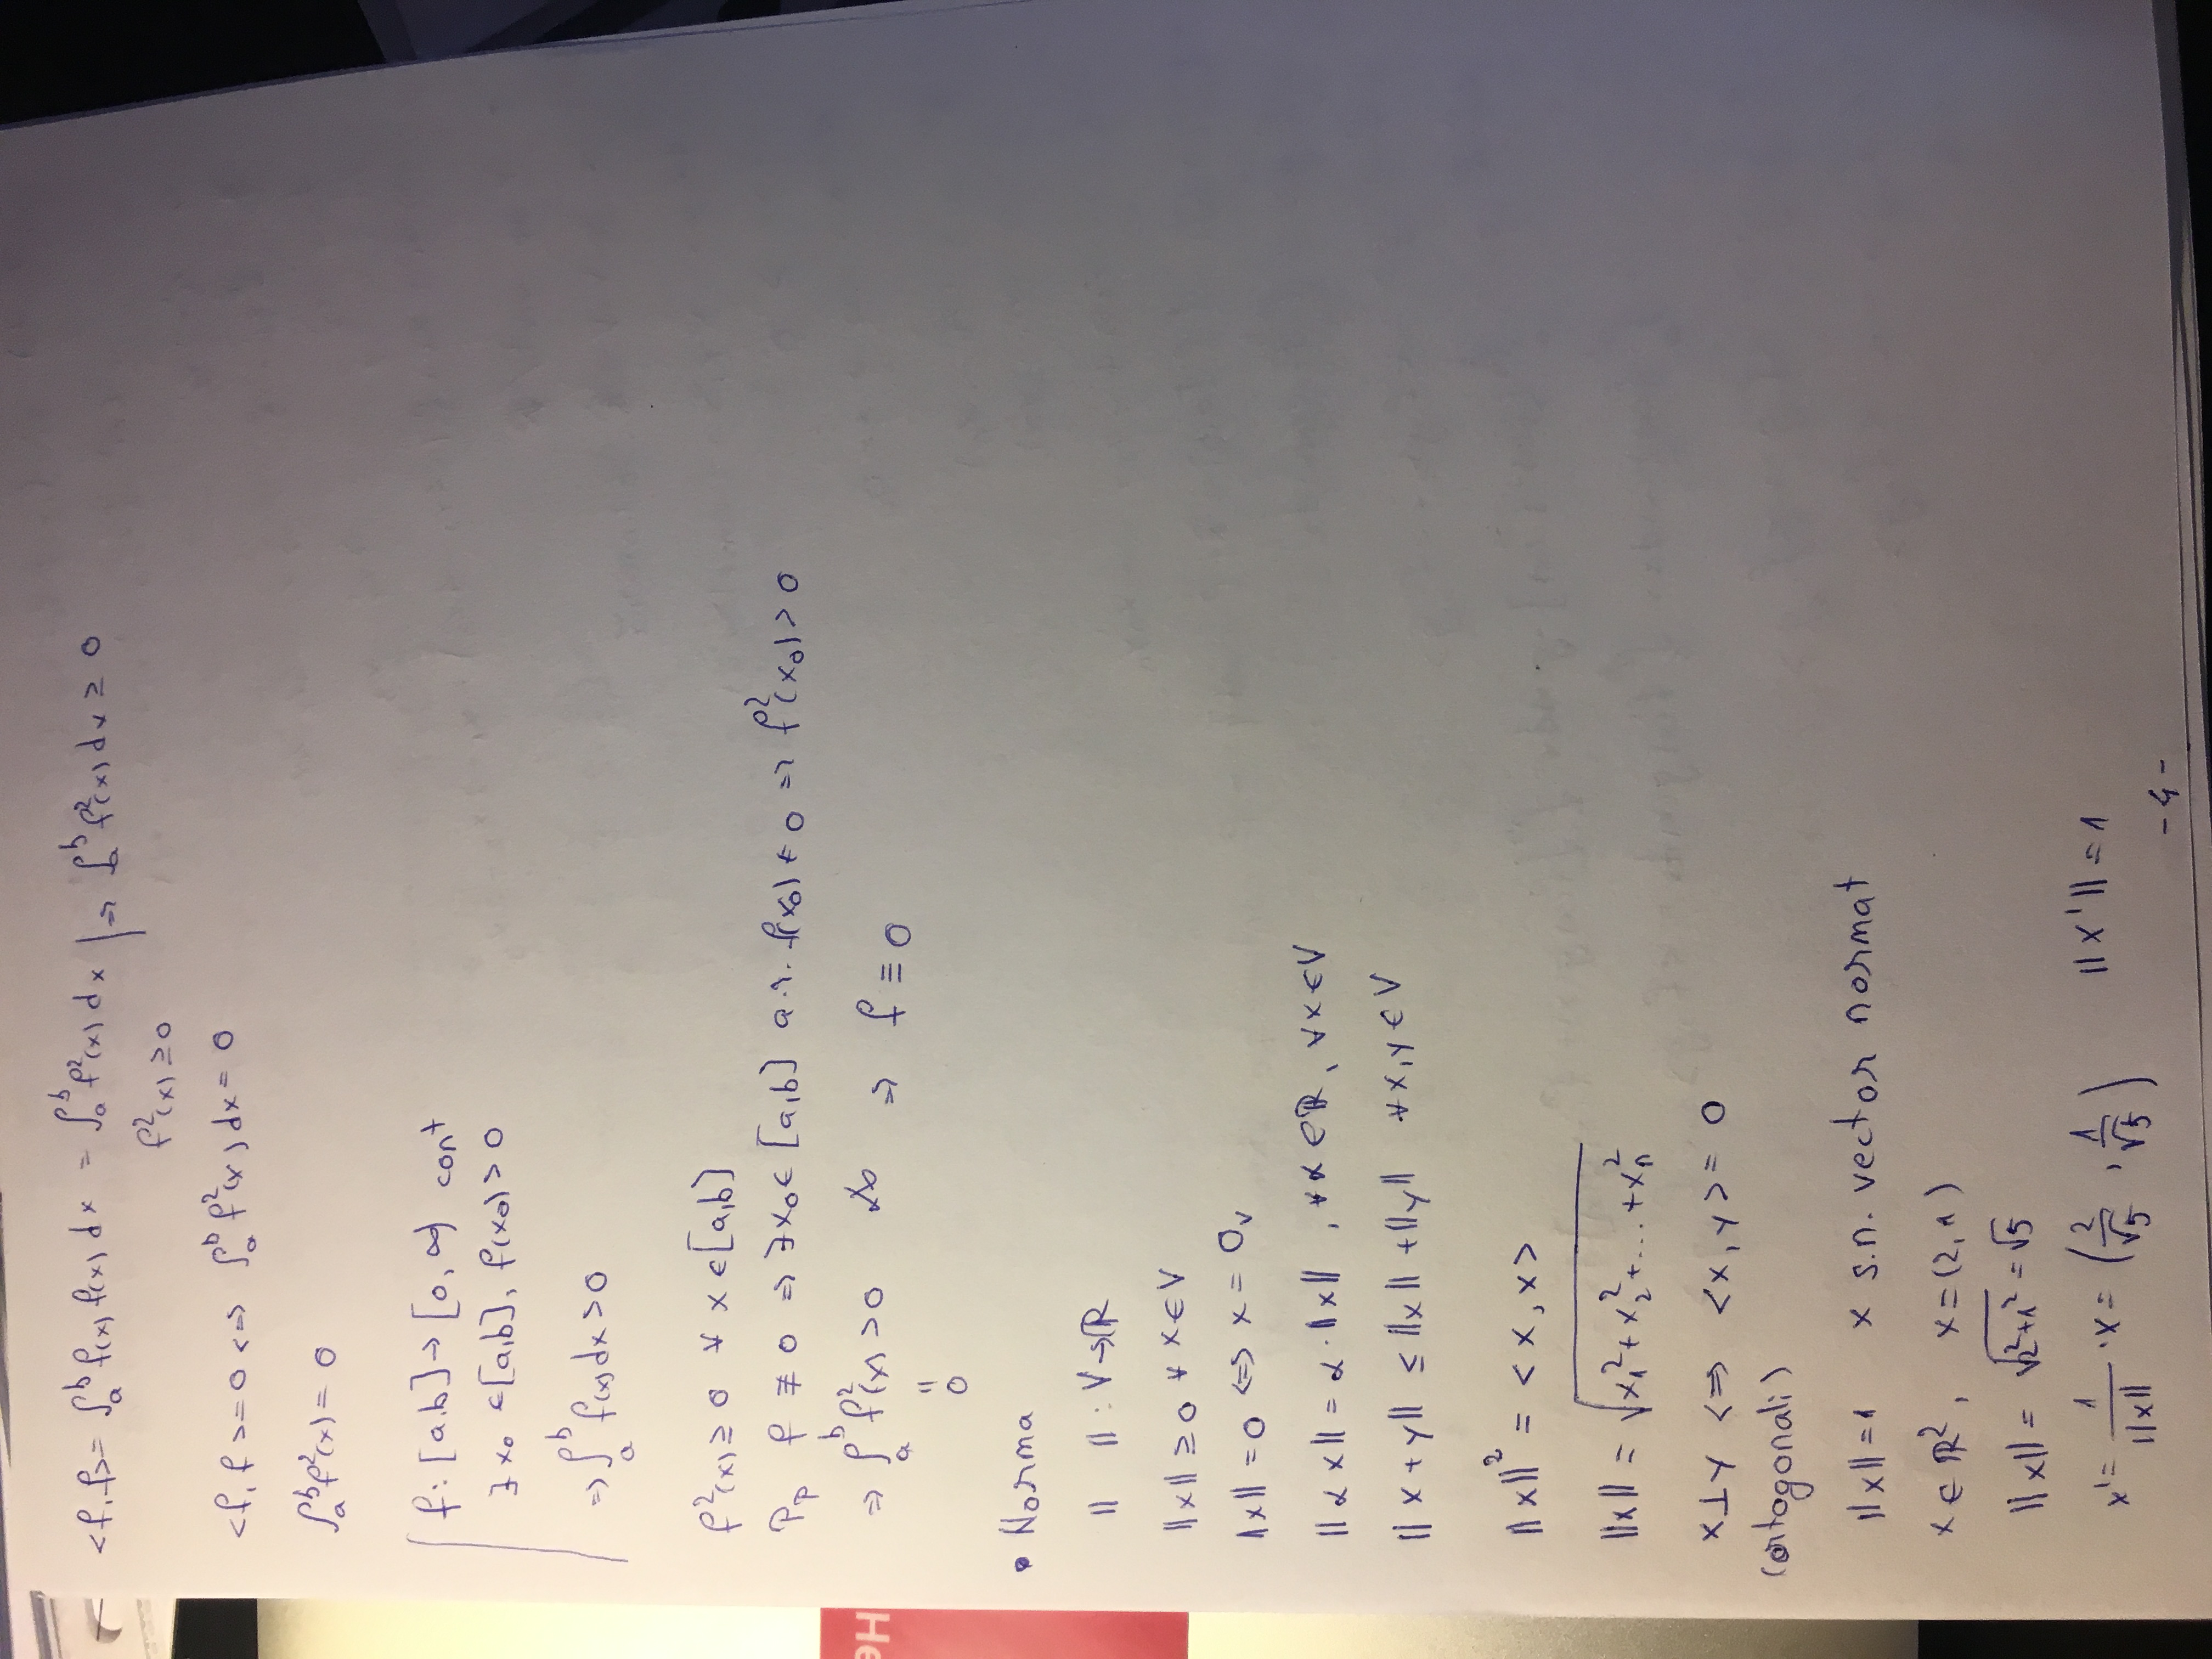 <f, f> = ∫_a^b f(x) f(x) dx = ∫_a^b f²(x) dx | => ∫_a^b f²(x) dx ≥ 0
f²(x) ≥ 0
<f, f> = 0 <=> ∫_a^b f²(x) dx = 0
∫_a^b f²(x) = 0
f: [a,b] → [0, ∞) cont
∃ x₀ ∈ [a,b], f(x₀) > 0
=> ∫_a^b f(x) dx > 0
f²(x) ≥ 0 ∀ x ∈ [a,b]
Pp f ≢ 0 => ∃ x₀ ∈ [a,b] a.î. f(x₀) ≠ 0 => f²(x₀) > 0
=> ∫_a^b f²(x) > 0 => f ≡ 0
"
0
• Norma
|| || : V → ℝ
||x|| ≥ 0 ∀ x ∈ V
||x|| = 0 <=> x = 0_V
||α x|| = α · ||x|| , ∀ α ∈ ℝ, ∀ x ∈ V
||x + y|| ≤ ||x|| + ||y|| ∀ x, y ∈ V
||x||² = <x, x>
||x|| = √(x₁² + x₂² + ... + xₙ²)
x ⊥ y <=> <x, y> = 0
(ortogonali)
||x|| = 1 x s.n. vector normat
x ∈ ℝ², x = (2, 1)
||x|| = √(2² + 1²) = √5
x' = 1/||x|| · x = (2/√5 , 1/√5) ||x'|| = 1
- 4 -
He